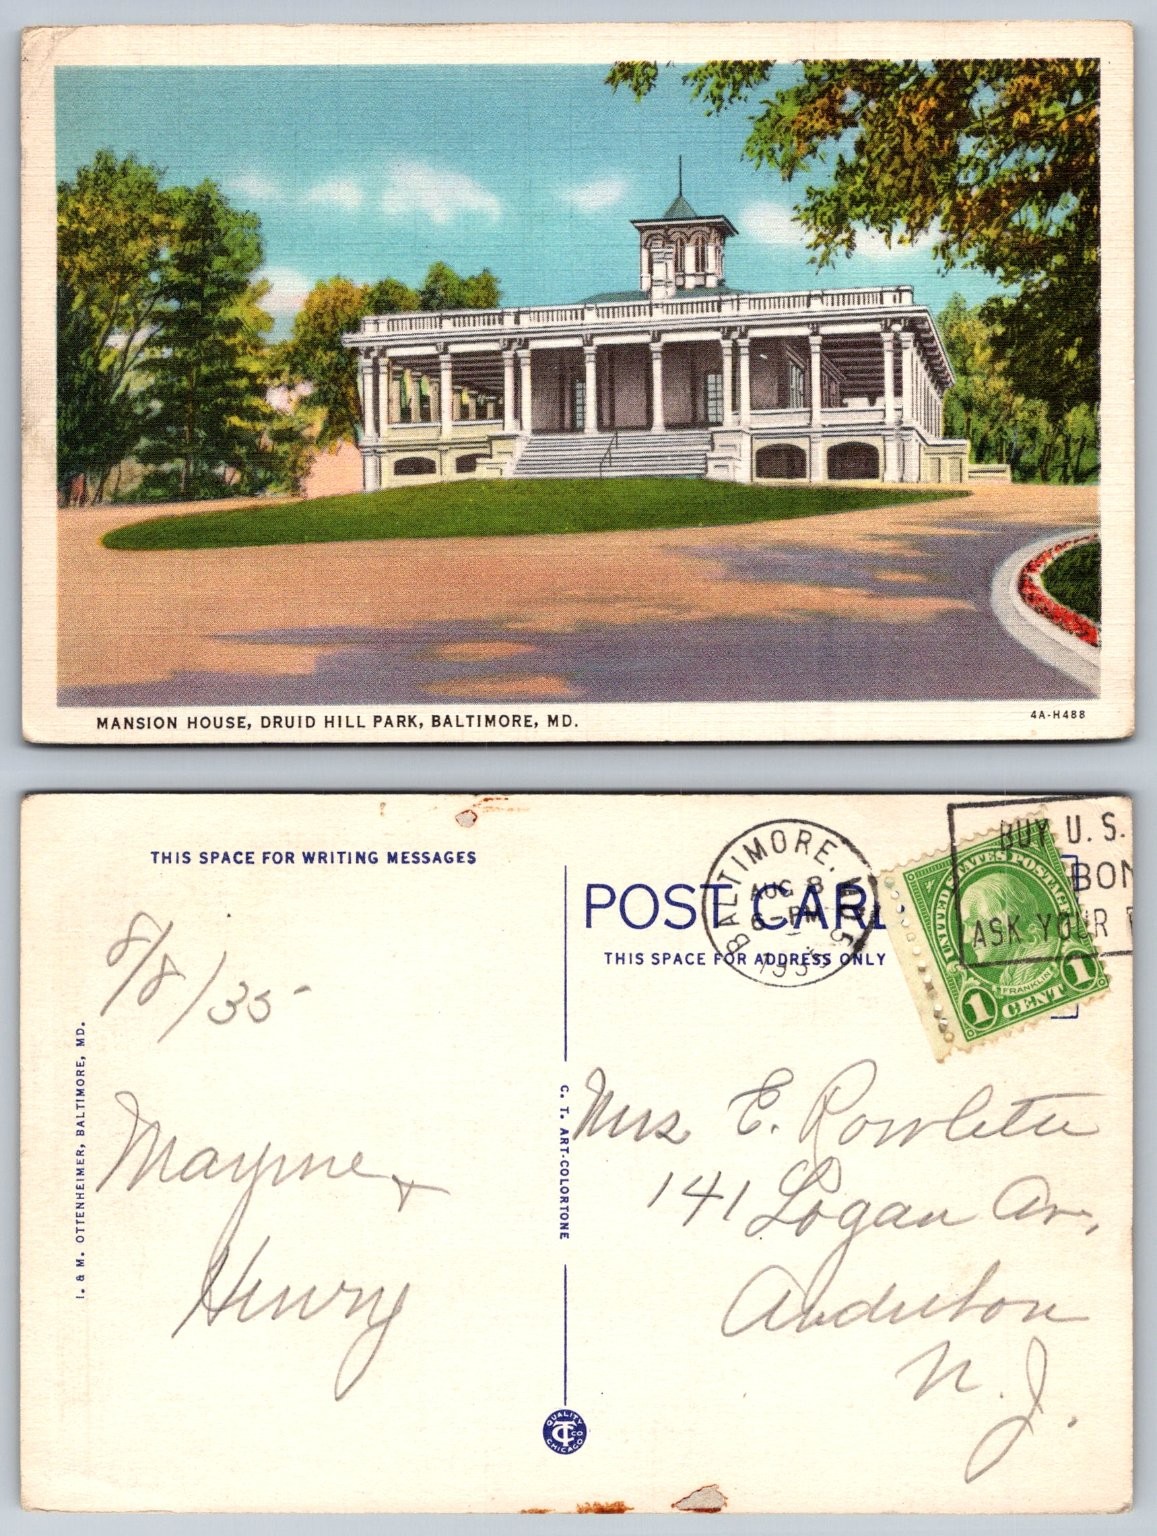 MANSION HOUSE, DRUID HILL PARK, BALTIMORE, MD.
4A-H488
THIS SPACE FOR WRITING MESSAGES
POST CARD
THIS SPACE FOR ADDRESS ONLY
BALTIMORE, MD. 5
AUG 8
6-PM
1935
BUY U.S.
BON
ASK YOUR
UNITED STATES POSTAGE
FRANKLIN
1 CENT 1
8/8/35-
Mayme +
Henry
Mrs E. Rowlette
141 Logan Av,
Audubon
N. J.
I. & M. OTTENHEIMER, BALTIMORE, MD.
C. T. ART-COLORTONE
QUALITY
CT CO
CHICAGO